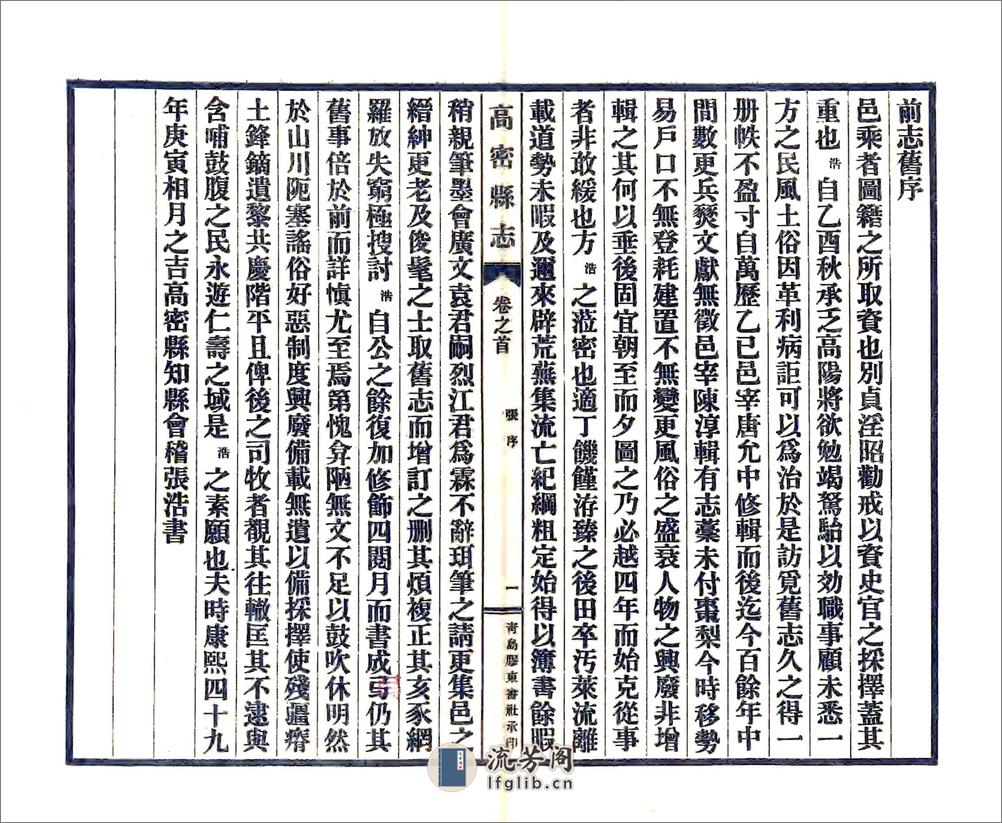 前志舊序
邑乘者圖籍之所取資也別貞淫昭勸戒以資史官之採擇蓋其
重也浩自乙酉秋承乏高陽將欲勉竭駑駘以効職事顧未悉一
方之民風土俗因革利病詎可以爲治於是訪覓舊志久之得一
册帙不盈寸自萬歷乙巳邑宰唐允中修輯而後迄今百餘年中
間數更兵燹文獻無徵邑宰陳淳輯有志藁未付棗梨今時移勢
易戶口不無登耗建置不無變更風俗之盛衰人物之興廢非增
輯之其何以垂後固宜朝至而夕圖之乃必越四年而始克從事
者非敢緩也方浩之蒞密也適丁饑饉洊臻之後田卒汚萊流離
載道勢未暇及邇來辟荒蕪集流亡紀綱粗定始得以簿書餘暇
高密縣志
卷之首
張序
一
青島膠東書社承印
稍親筆墨會廣文袁君嗣烈江君爲霖不辭珥筆之請更集邑之
縉紳更老及俊髦之士取舊志而增訂之删其煩複正其亥豕網
羅放失窮極搜討浩自公之餘復加修飾四閱月而書成焉仍其
舊事倍於前而詳慎尤至焉第愧弇陋無文不足以鼓吹休明然
於山川阨塞謠俗好惡制度興廢備載無遺以備採擇使殘疆瘠
土鋒鏑遺黎共慶階平且俾後之司牧者覩其往轍匡其不逮與
含哺鼓腹之民永遊仁壽之域是浩之素願也夫時康熙四十九
年庚寅相月之吉高密縣知縣會稽張浩書
流芳阁
lfglib.cn